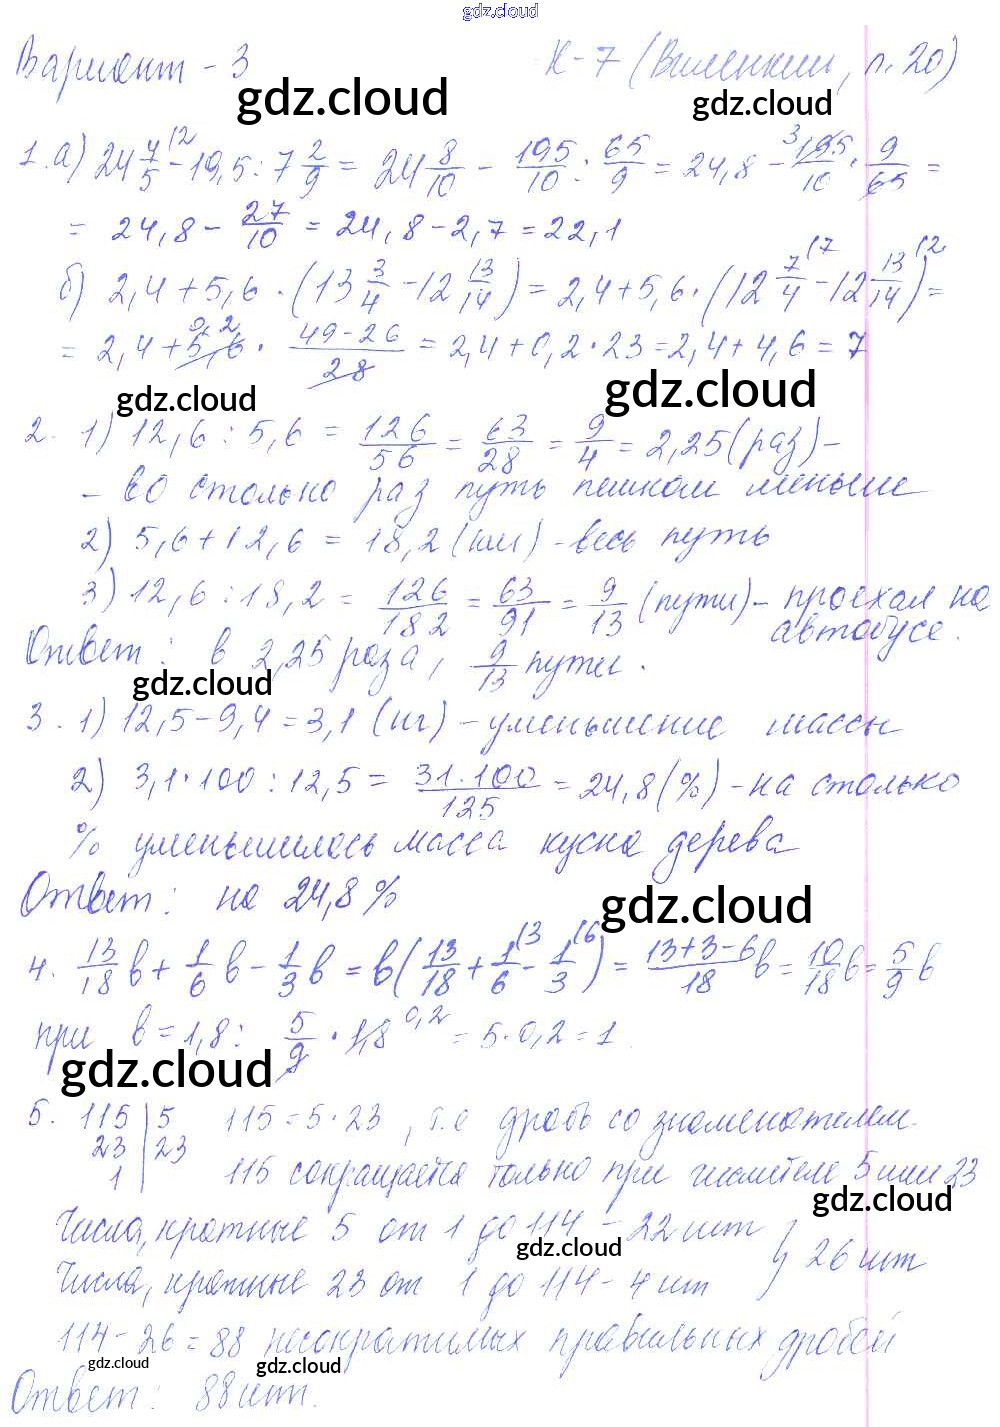 gdz.cloud
Вариант - 3 К-7 (Виленкин, п. 20)
gdz.cloud gdz.cloud
1. а) 24 4/5 (2 - 19,5 : 7 2/9 = 24 8/10 - 195/10 : 65/9 = 24,8 - 3 195/10 · 9/65 =
= 24,8 - 27/10 = 24,8 - 2,7 = 22,1
б) 2,4 + 5,6 · (13 3/4 - 12 13/14) = 2,4 + 5,6 · (12 7/4 (7 - 12 13/14 (2) =
= 2,4 + 5,6 0,2 · 49-26/28 = 2,4 + 0,2 · 23 = 2,4 + 4,6 = 7
gdz.cloud gdz.cloud
2. 1) 12,6 : 5,6 = 126/56 = 63/28 = 9/4 = 2,25 (раз) -
- во столько раз путь пешком меньше
2) 5,6 + 12,6 = 18,2 (км) - весь путь
3) 12,6 : 18,2 = 126/182 = 63/91 = 9/13 (пути) - проехал на
автобусе.
Ответ: в 2,25 раза, 9/13 пути.
gdz.cloud
3. 1) 12,5 - 9,4 = 3,1 (кг) - уменьшение массы
2) 3,1 · 100 : 12,5 = 31·100/125 = 24,8 (%) - на столько
% уменьшилось масса куска дерева
Ответ: на 24,8 %
gdz.cloud
4. 13/18 в + 1/6 в - 1/3 в = в (13/18 + 1/6 (3 - 1/3 (6) = 13+3-6/18 в = 10/18 в = 5/9 в
при в = 1,8: 5/9 · 1,8 0,2 = 5 · 0,2 = 1.
gdz.cloud
5. 115 | 5 115 = 5 · 23, т.е дробь со знаменателем
23 | 23
1 | 115 сокращается только при числителе 5 или 23
gdz.cloud
Числа, кратные 5 от 1 до 114 - 22 шт
gdz.cloud } 26 шт
Числа, кратные 23 от 1 до 114 - 4 шт
114 - 26 = 88 несократимых правильных дробей
gdz.cloud gdz.cloud
Ответ: 88 шт.